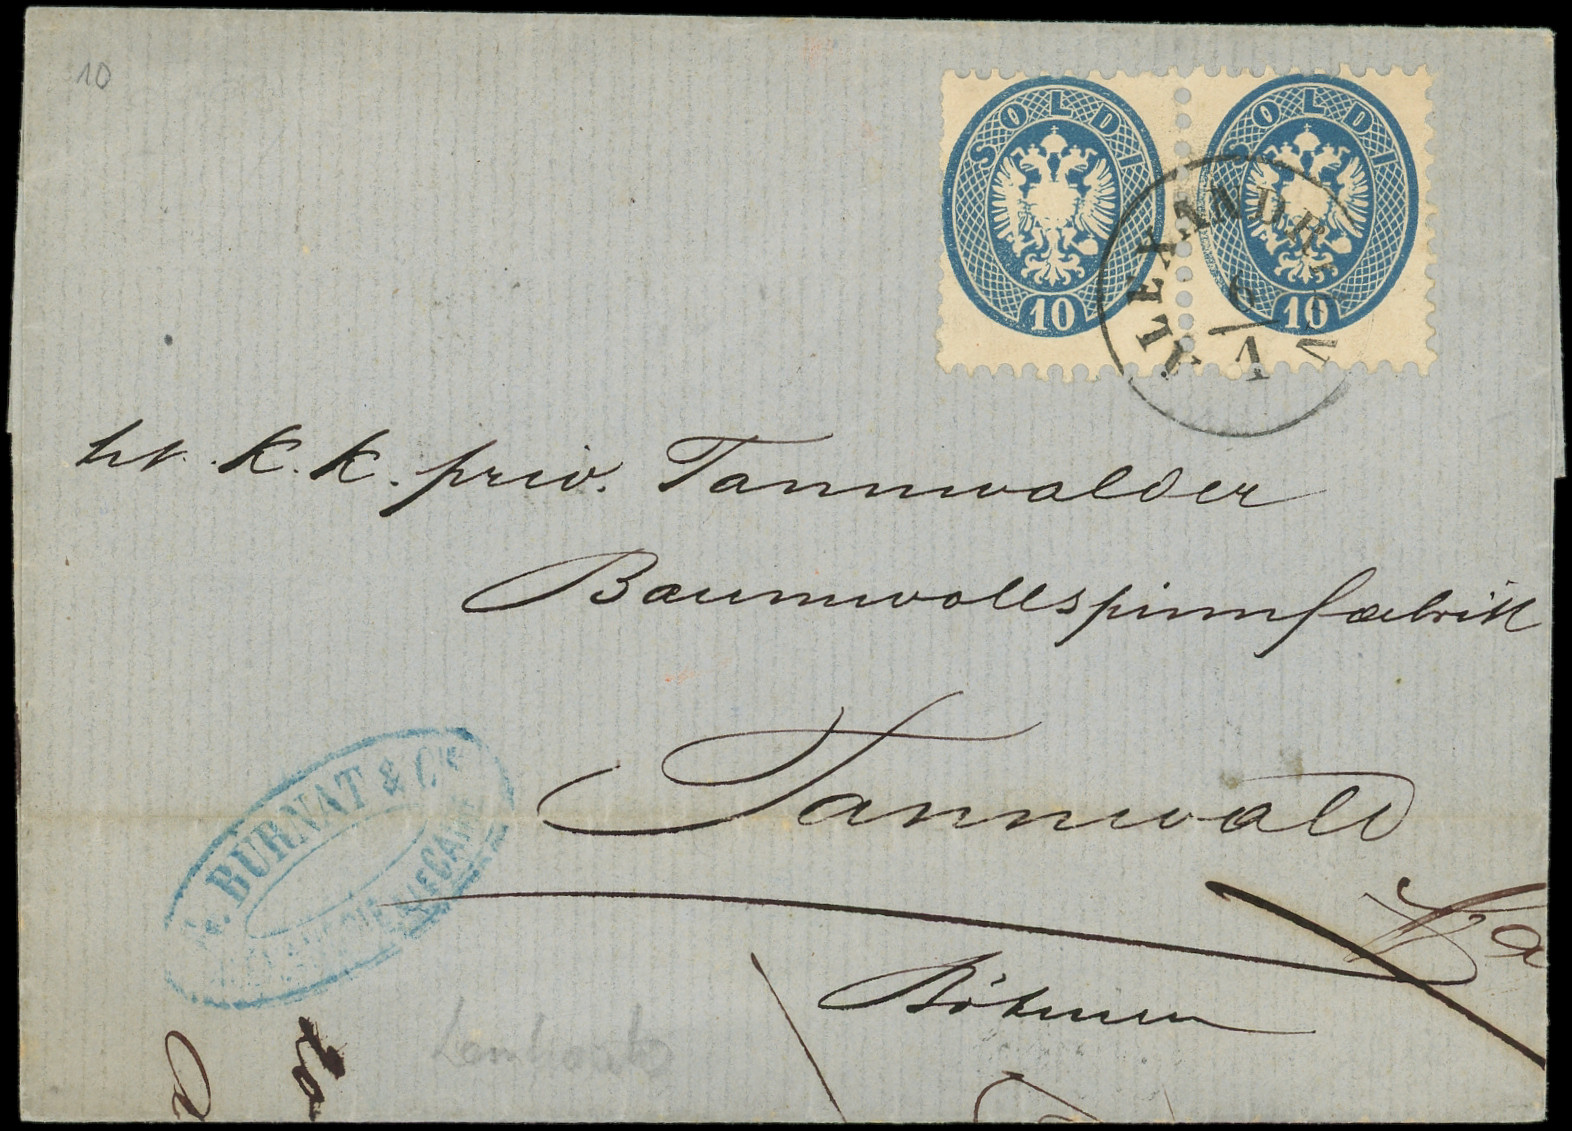 10
SOLDI SOLDI
10 10
ALEXANDRIEN
6/1
K. K. priv. Tannwalder
Baumwollspinnfabrik
Tannwald
Böhmen
BURNAT & Cie
LE CAIRE